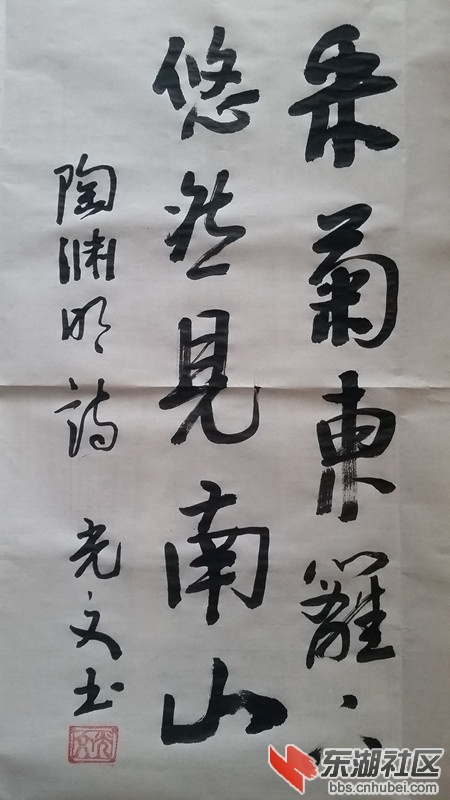 采菊東籬下
悠然見南山
陶渊明詩 光文书
东湖社区
bbs.cnhubei.com